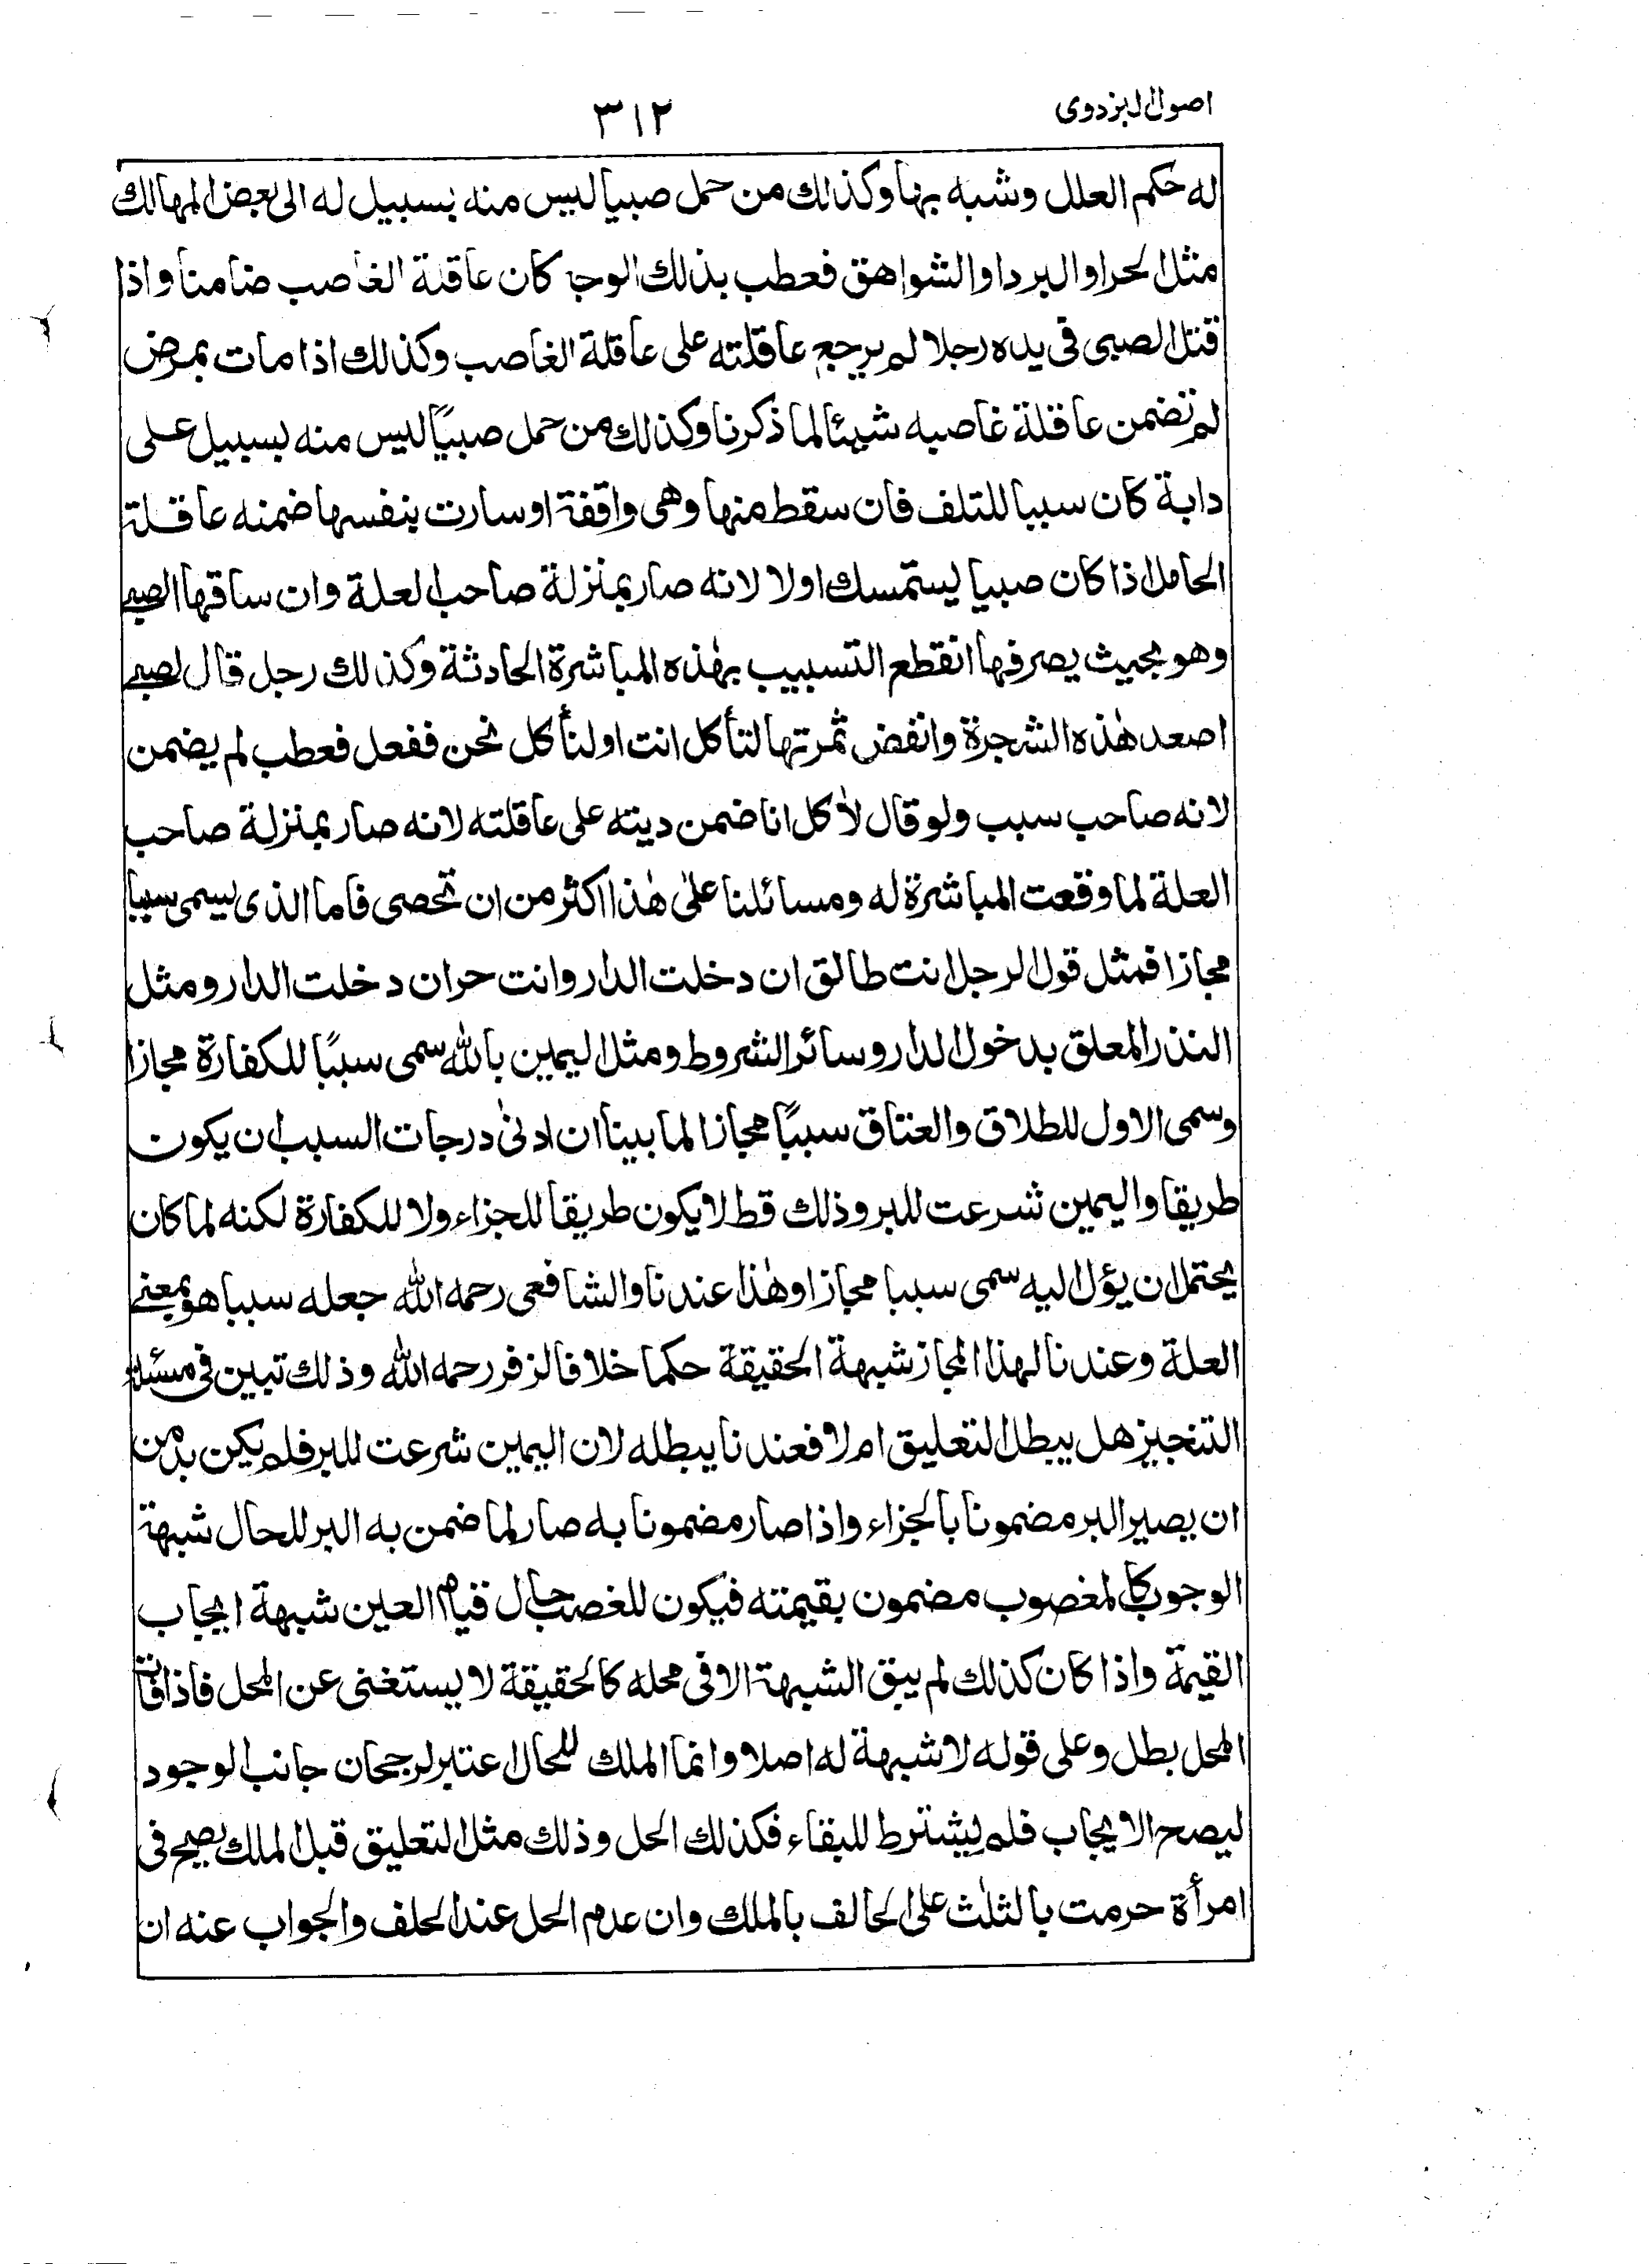 اصول البزدوى
٣١٢
له حكم العلل وشبه بها وكذلك من حمل صبيا ليس منه بسبيل له الى بعض المهالك
مثل الحر او البرد او الشواهق فعطب بذلك الوجه كان عاقلة الغاصب ضامنا واذا
قتل الصبى فى يده رجلا لم يرجع عاقلته على عاقلة الغاصب وكذلك اذا مات بمرض
لم تضمن عاقلة غاصبه شيئا لما ذكرنا وكذلك من حمل صبيًا ليس منه بسبيل على
دابة كان سببا للتلف فان سقط منها وهى واقفة او سارت بنفسها ضمنه عاقلة
الحامل اذا كان صبيا يستمسك اولا لانه صار بمنزلة صاحب العلة وان ساقها الصبى
وهو بحيث يصرفها انقطع التسبيب بهٰذه المباشرة الحادثة وكذلك رجل قال لصبى
اصعد هٰذه الشجرة وانفض ثمرتها لتأكل انت او لنأكل نحن ففعل فعطب لم يضمن
لانه صاحب سبب ولو قال لأكل انا ضمن ديته على عاقلته لانه صار بمنزلة صاحب
العلة لما وقعت المباشرة له ومسائلنا علىٰ هٰذا اكثر من ان تحصى فاما الذى يسمى سببا
مجازا فمثل قول الرجل انت طالق ان دخلت الدار وانت حر ان دخلت الدار ومثل
النذر المعلق بدخول الدار وسائر الشروط ومثل اليمين بالله سمى سببًا للكفارة مجازا
وسمى الاول للطلاق والعتاق سببًا مجازا لما بينا ان ادنىٰ درجات السبب ان يكون
طريقا واليمين شرعت للبر وذلك قط لا يكون طريقا للجزاء ولا للكفارة لكنه لما كان
يحتمل ان يؤل اليه سمى سببا مجازا وهٰذا عندنا والشافعى رحمه الله جعله سببا هو بمعنى
العلة وعندنا لهذا المجاز شبهة الحقيقة حكما خلافا لزفر رحمه الله وذلك تبين فى مسئلة
التنجيز هل يبطل التعليق ام لا فعندنا يبطله لان اليمين شرعت للبر فلم يكن بد من
ان يصير البر مضمونا بالجزاء واذا صار مضمونا به صار لما ضمن به البر للحال شبهة
الوجوب كالمغصوب مضمون بقيمته فيكون للغصب حال قيام العين شبهة ايجاب
القيمة واذا كان كذلك لم يبق الشبهة الا فى محله كالحقيقة لا يستغنى عن المحل فاذا فات
المحل بطل وعلى قوله لا شبهة له اصلا وانما الملك للحال اعتبر لرجحان جانب الوجود
ليصح الايجاب فلم يشترط للبقاء فكذلك الحل وذلك مثل التعليق قبل الملك يصح فى
امرأة حرمت بالثلٰث على الحالف بالملك وان عدم الحل عند الحلف والجواب عنه ان